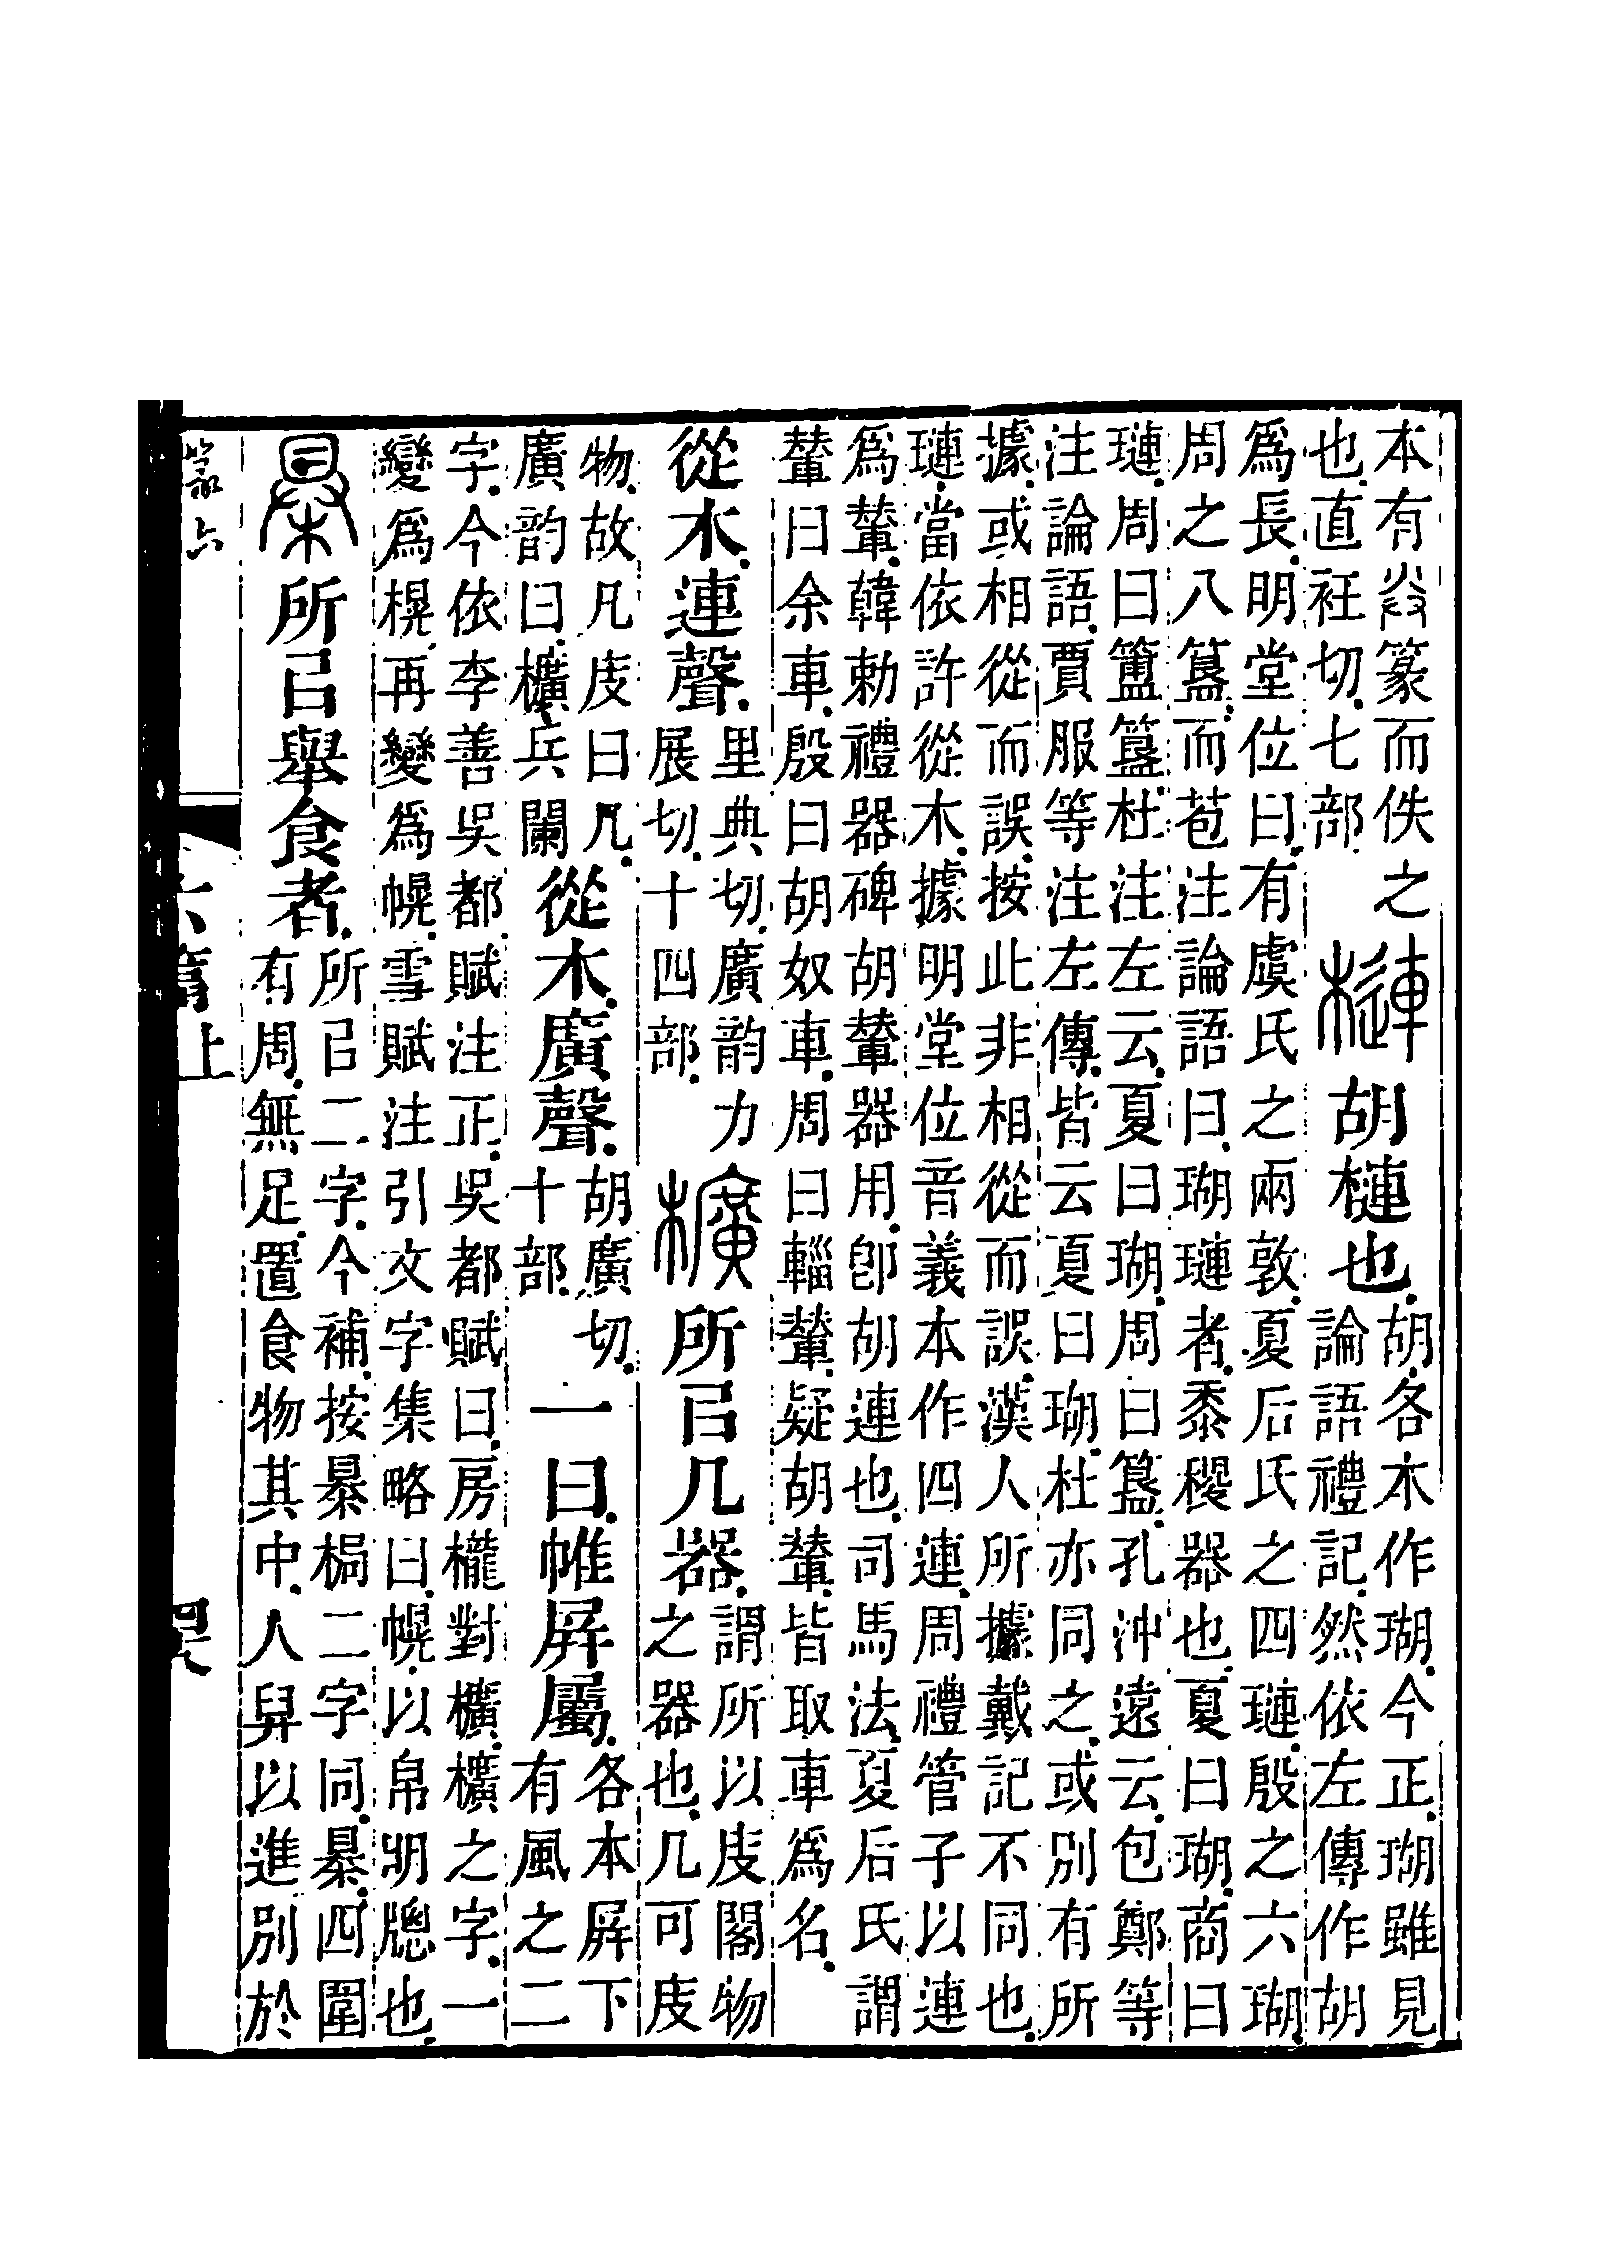 本有𣪘篆而佚之
也直衽切七部
槤胡槤也
胡各本作瑚今正瑚雖見
論語禮記然依左傳作胡
爲長明堂位曰有虞氏之兩敦夏后氏之四璉殷之六瑚
周之八簋而苞注論語曰瑚璉者黍稷器也夏曰瑚商曰
璉周曰簠簋杜注左云夏曰瑚周曰簋孔沖遠云包鄭等
注論語賈服等注左傳皆云夏曰瑚杜亦同之或別有所
據或相從而誤按此非相從而誤漢人所據戴記不同也
璉當依許從木據明堂位音義本作四連周禮管子以連
爲輦韓勅禮器碑胡輦器用卽胡連也司馬法夏后氏謂
輦曰余車殷曰胡奴車周曰輜輦疑胡輦皆取車爲名
從木連聲
里典切廣韵力
展切十四部
櫎所㠯几器
謂所以庋閣物
之器也几可庋
物故凡庋曰几
廣韵曰櫎兵闌
從木廣聲
胡廣切
十部
一曰帷屏屬
各本屏下
有風之二
字今依李善吳都賦注正吳都賦曰房櫳對櫎櫎之字一
變爲榥再變爲幌雪賦注引文字集略曰幌以帛明牕也
㯱所㠯舉食者
所㠯二字今補按㯱梮二字同㯱四圍
有周無足置食物其中人舁以進別於
篆六
六篇上